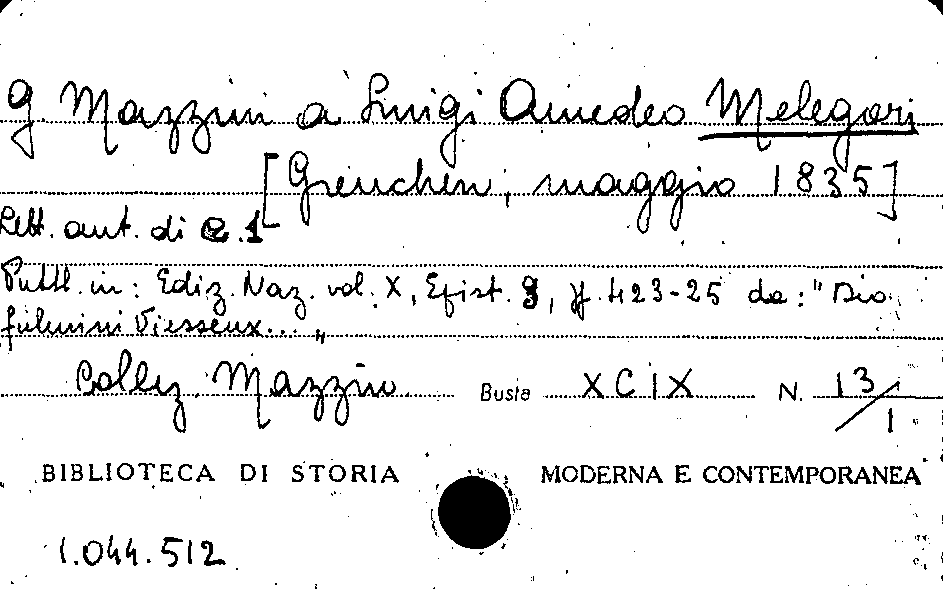 G Mazzini a Luigi Amedeo Melegari
[Grenchen, maggio 1835]
Lett. aut. di c. 1
Pubbl. in: Ediz. Naz. vol. X, Epist. 3, pp. 423-25 da: "Dio
fulmini Viesseux... "
Collez. Mazzini Busta XCIX N. 13/1
BIBLIOTECA DI STORIA MODERNA E CONTEMPORANEA
1.044.512